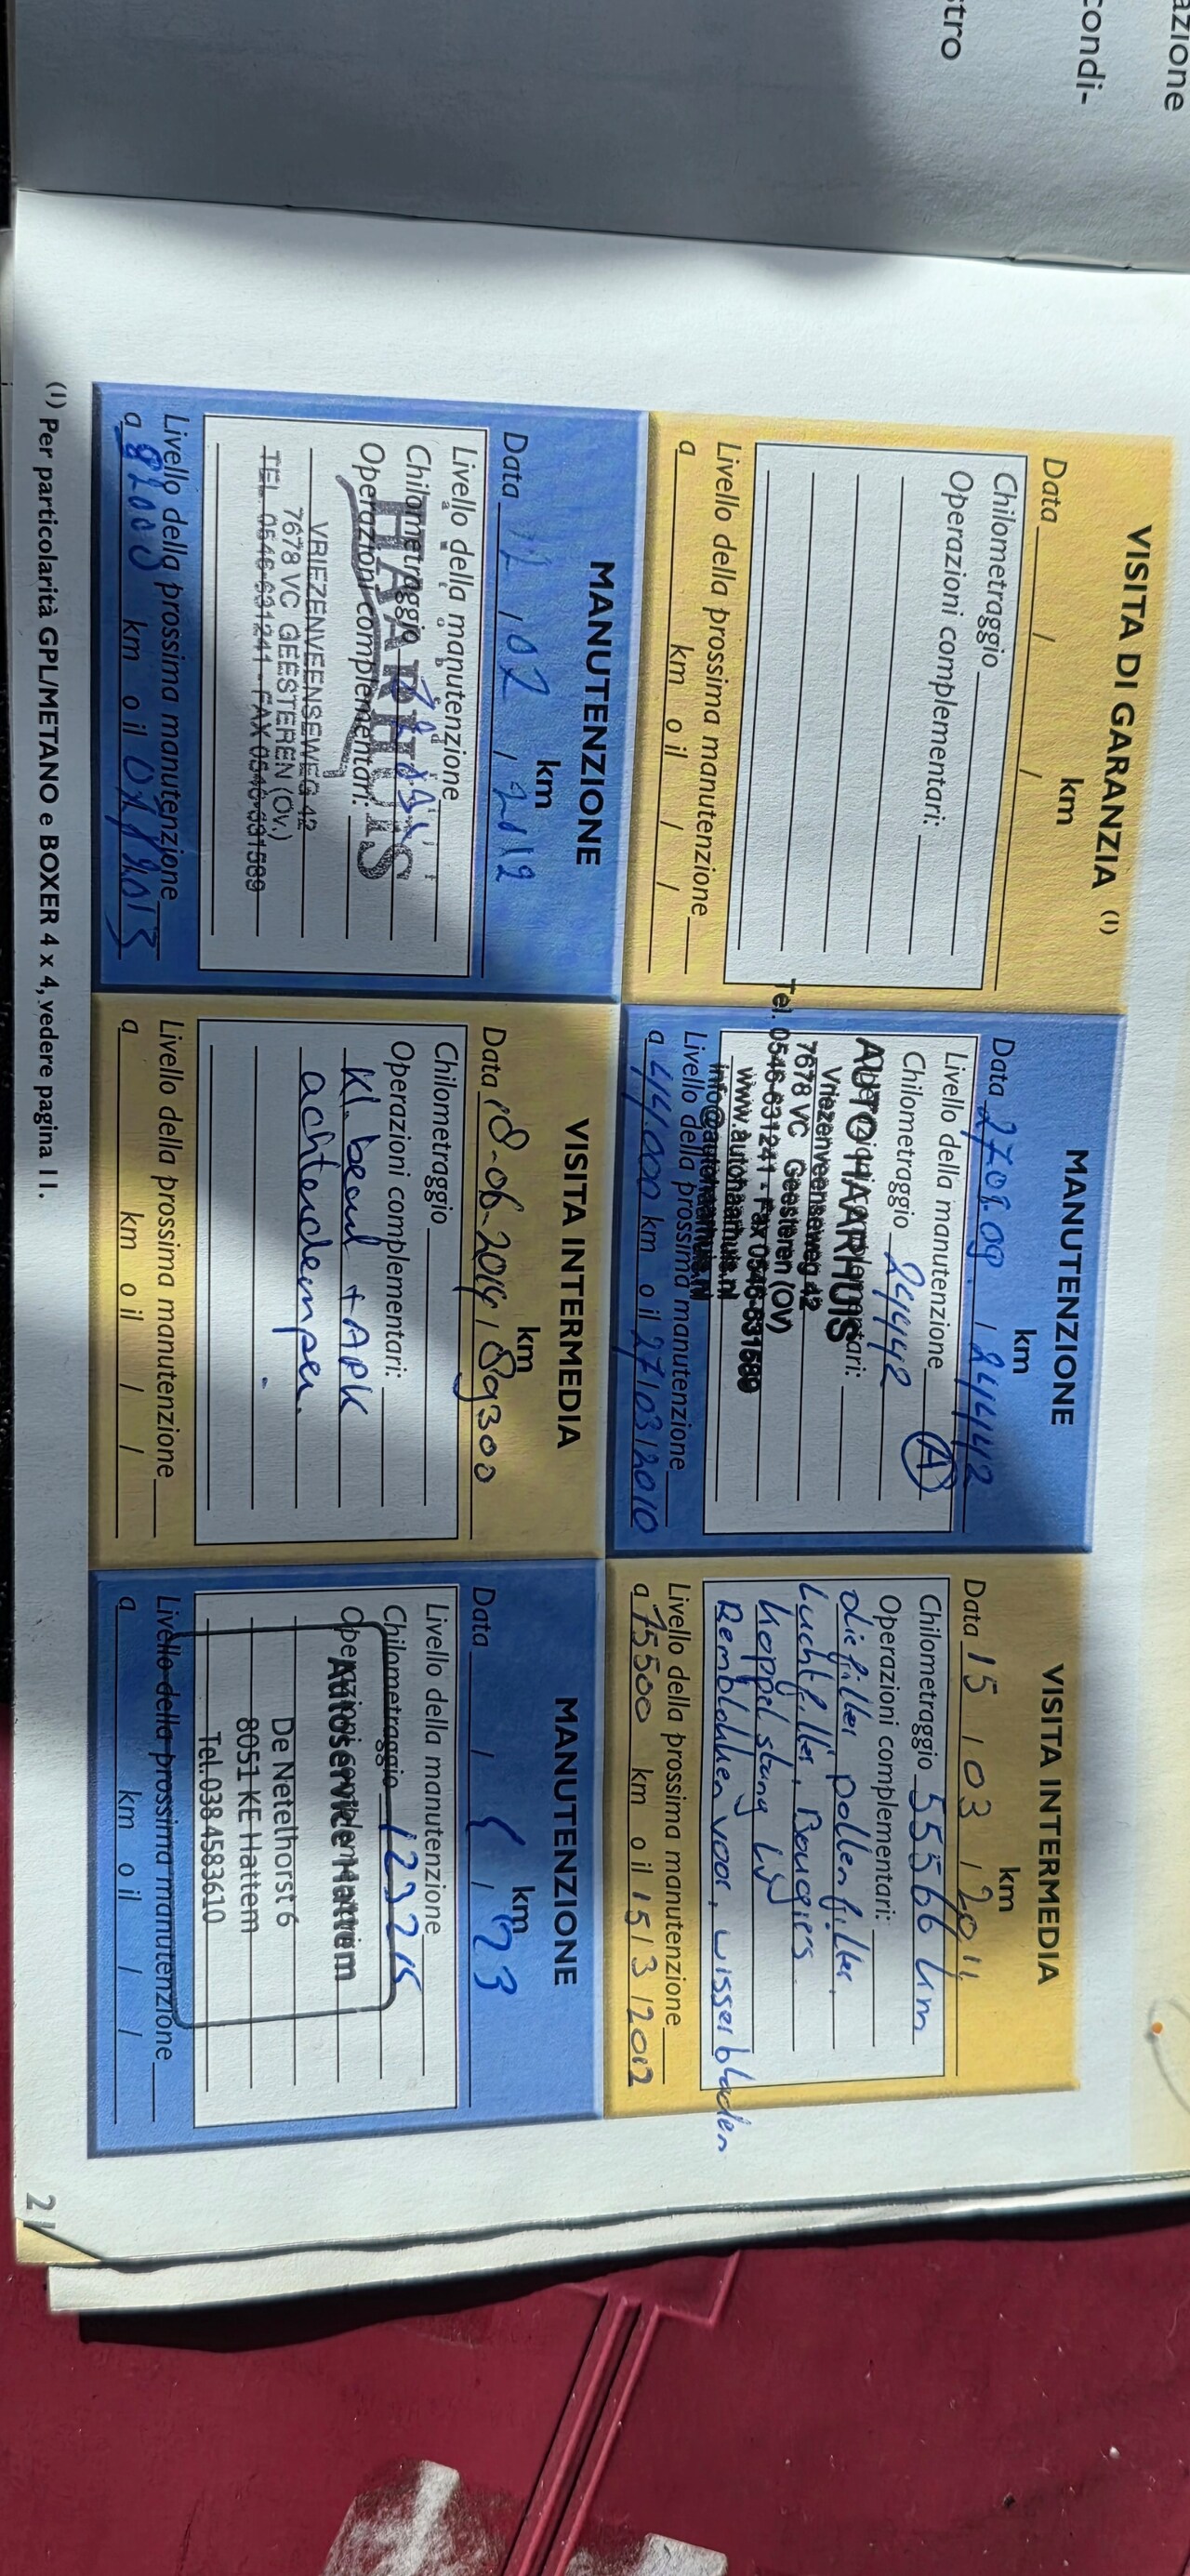 azione
condi-
stro
VISITA DI GARANZIA (1)
km
Data / /
Chilometraggio
Operazioni complementari:
Livello della prossima manutenzione
a km o il / /
MANUTENZIONE
km
Data 27.01.09. / 24442
Livello della manutenzione A
Chilometraggio 24442
AUTO HAARHUIS
Vriezenveenseweg 42
7678 VC Geesteren (OV)
Tel. 0546-631241 - Fax 0546-631589
www.autohaarhuis.nl
info@autohaarhuis.nl
Livello della prossima manutenzione
a 44.000 km o il 27/03/2010
VISITA INTERMEDIA
km
Data 15 / 03 / 2011
Chilometraggio 55566 km
Operazioni complementari:
oliefilter pollenfilter
Luchtfilter, Bougies
koppelstang
Remblokken voor, wisserbladen
Livello della prossima manutenzione
a 75500 km o il 15/3/2012
MANUTENZIONE
km
Data / 02 / 2012
Livello della manutenzione
Chilometraggio
Operazioni complementari:
HAARHUIS
VRIEZENVEENSEWEG 42
7678 VC GEESTEREN (Ov.)
TEL. 0546-631241 - FAX 0546-631589
Livello della prossima manutenzione
a km o il 2013
VISITA INTERMEDIA
km
Data 18-06-2014 / 89300
Chilometraggio
Operazioni complementari:
kl. beurt + APK
achterdemper.
Livello della prossima manutenzione
a km o il / /
MANUTENZIONE
km
Data / / 23
Livello della manutenzione
Chilometraggio 123215
Operazioni complementari:
Autoservice Hattem
De Netelhorst 6
8051 KE Hattem
Tel. 038 4583610
Livello della prossima manutenzione
a km o il / /
(1) Per particolarità GPL/METANO e BOXER 4 x 4, vedere pagina 11.